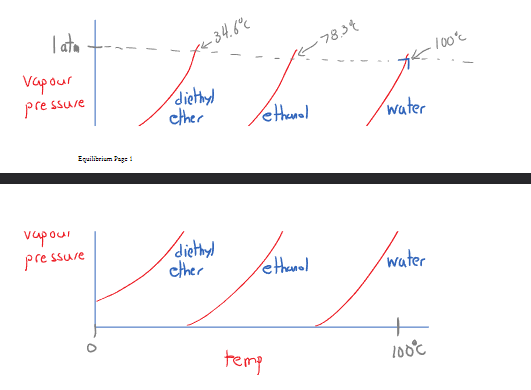 34.6°C
78.3°C
100°C
1 atm
Vapour
pressure
diethyl
ether
ethanol
water
Equilibrium Page 1
vapour
pressure
diethyl
ether
ethanol
water
0
100°C
temp